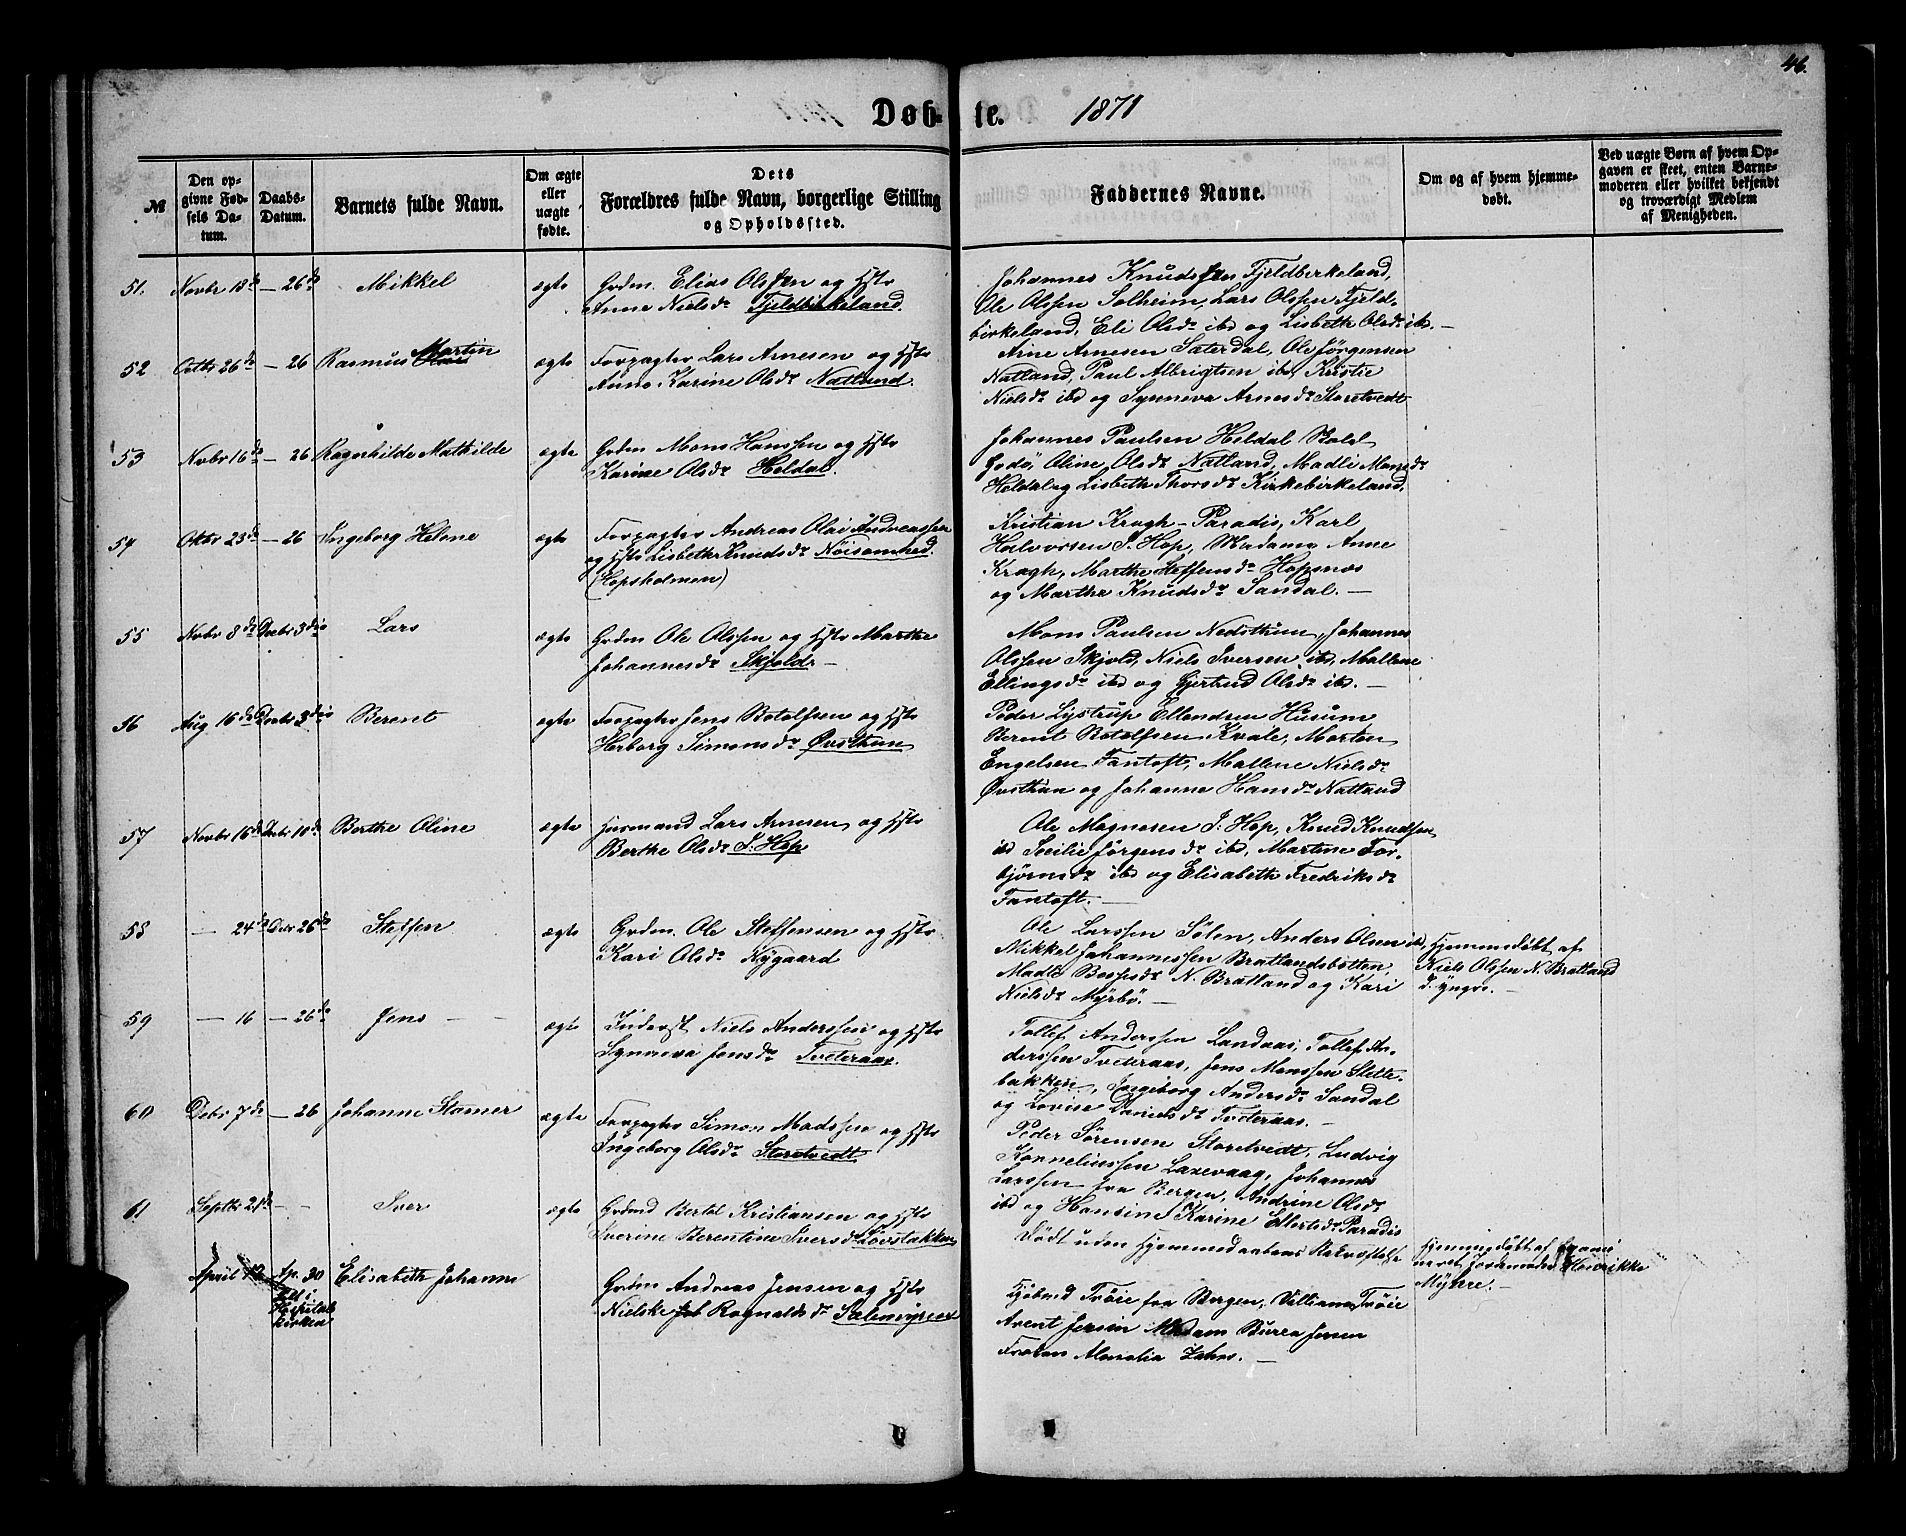 46.
Døb- te. 1871
№
Den op-
givne Fød-
sels Da-
tum.
Daabs-
Datum.
Barnets fulde Navn.
Om ægte
eller
uægte
fødte.
Dets
Forældres fulde Navn, borgerlige Stilling
og Opholdssted.
Faddernes Navne.
Om og af hvem hjemme-
døbt.
Ved uægte Børn af hvem Op-
gaven er skeet, enten Barne-
moderen eller hvilket bekjendt
og troværdigt Medlem
af Menigheden.
51. Novbr 18de — 26de Mikkel ægte Grdm. Elias Olssen og Hstr
Anne Nielsdr Fjeldbirkeland.
Johannes Knudssen Fjeldbirkeland,
Ole Olssen Solheim, Lars Olssen Fjeld-
birkeland, Eli Olsdr ibd og Lisbeth Olsdr ibd. —
52 26de — 26 Rasmus Martin ægte Forpagter Lars Arnesen og Hstr
Anne Karine Olsdr Natland.
Arne Arnesen Sæterdal, Ole Jørgensen
Natland, Paul Albrigtsen ibd, Kristie
Nielsdr ibd og Synneva Arnesdr Storetvedt
53 Novbr 16de — 26 Ragnhilde Mathilde ægte Grdm Mons Hanssen og Hstr
Karine Olsdr Heldal.
Johannes Paulsen Heldal
Oline Olsdr Natland, Madli Monsdr
Heldal og Lisbeth Thorsdr Kirkebirkeland.
54 Oktbr 23de — 26 Ingeborg Helene ægte Forpagter Andreas Olai Andreassen
og Hstr Lisbeth Knudsdr Nøisomhed.
(Hopsholmen)
Kristian Krogh - Paradis, Karl
Halvorsen I. Hop, Madame Anne
Krogh, Marthe Steffensdr Hopsnæs
og Marthe Knudsdr Sandal. —
55 Novbr 8de Decbr 3die Lars ægte Grdm Ole Olssen og Hstr Marthe
Johannesdr Skjold. —
Mons Paulsen Nedsthun, Johannes
Olssen Skjold, Niels Iversen ibd, Mallene
Ellingsdr ibd og Gjertrud Olsdr ibd. —
56 Aug 16de Decbr 3die Berent ægte Forpagter Jens Botolfsen og Hstr
Herborg Simonsdr Øvsthun
Peder Lystrup Ellendsen Husum
Bernt Botolfsen Kvale, Morten
Engelsen Fantoft, Mallene Nielsdr
Øvsthun og Johanne Hansdr Natland
57 Novbr 16de Decbr 10de Berthe Oline ægte Husmand Lars Arnesen og Hstr
Berthe Olsdr I. Hop
Ole Magnesen I. Hop, Knud Knudsen
ibd Secilie Jørgensdr ibd, Martine Tor-
bjørnsdr ibd og Elisabeth Fredriksdr
Fantoft. —
58 — 24de Decbr 26de Steffen ægte Grdm. Ole Steffensen og Hstr
Kari Olsdr Nygaard
Ole Larssen Sølen, Anders Olsen ibd,
Mikkel Johannessen Bratlandsbotten,
Madli N. Bratland og Kari
Nielsdr Myrbø. —
Hjemmedøbt af
Niels Olssen N. Bratland
d. yngre. —
59 — 16 — 26de Jens — ægte Inderst Niels Anderssen og Hstr
Synneva Jensdr Tveteraas.
Tollef Anderssen Landaas, Tollef An-
derssen Tveteraas, Jens Monssen Slette-
bakken, Ingeborg Andersdr Sandal
og Lovise Danielsdr Tveteraas. —
60 Debr 7de — 26 Johanne Stamer ægte Forpagter Simon Madssen og Hstr
Ingeborg Olsdr Storetvedt
Peder Sørensen Storetvedt, Ludvig
Korneliussen Laxevaag, Johannes
Larssen fra Bergen, Andrine Olsdr
ibd og Hansine Karine Ellertsdr Paradis
61 Septbr 21de — - Iver ægte Grdmd Bertel Kristiansen og Hstr
Iverine Berentine Iversdr Løvstakken
Død uden Hjemmedaabens Bekræftelse
Hjemmedøbt af
Myhre. —
April 12 Ap. 30
Hospitals
kirken
Elisabeth Johanne
Grdm Andreas Jensen og Hstr
Nielske Ragnaldsdr Sælemyren
Kjøbmd Trøie fra Bergen, Villiam Trøie
Avent Jensen Madam Jensen
Frøken